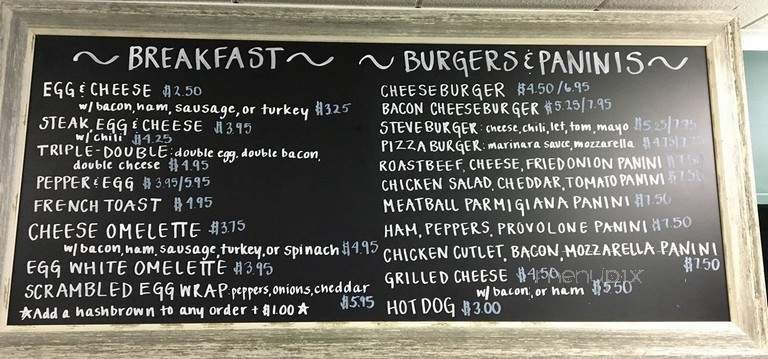 ~ BREAKFAST ~
EGG & CHEESE $2.50
w/ bacon, ham, sausage, or turkey $3.25
STEAK, EGG & CHEESE $3.95
w/ chili $4.25
TRIPLE-DOUBLE: double egg, double bacon,
double cheese $4.95
PEPPER & EGG $3.95/5.95
FRENCH TOAST $4.95
CHEESE OMELETTE $3.75
w/ bacon, ham, sausage, turkey, or spinach $4.95
EGG WHITE OMELETTE $3.95
SCRAMBLED EGG WRAP: peppers, onions, cheddar
$5.95
☆Add a hashbrown to any order + $1.00☆
~ BURGERS & PANINIS ~
CHEESEBURGER $4.50/6.95
BACON CHEESEBURGER $5.25/7.95
STEVEBURGER: cheese, chili, let, tom, mayo $5.25/7.95
PIZZABURGER: marinara sauce, mozzarella $4.75/
ROASTBEEF, CHEESE, FRIED ONION PANINI $7.50
CHICKEN SALAD, CHEDDAR, TOMATO PANINI $7.50
MEATBALL PARMIGIANA PANINI $7.50
HAM, PEPPERS, PROVOLONE PANINI $7.50
CHICKEN CUTLET, BACON, MOZZARELLA PANINI
$7.50
GRILLED CHEESE $4.50
w/ bacon, or ham $5.50
HOT DOG $3.00
menupix